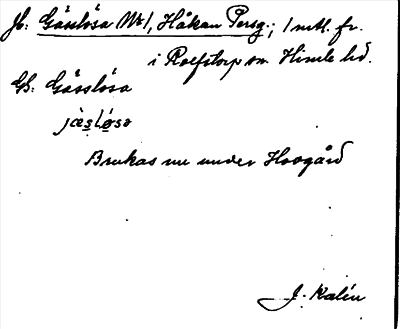 Jb: Gässlösa (Nr 1, Håkan Persg.; 1 mtl. fr.
i Rolfstorp sn Himle hd.
Gk: Gässlösa
jäslösa
Brukas nu under Hovgård
J. Kalén